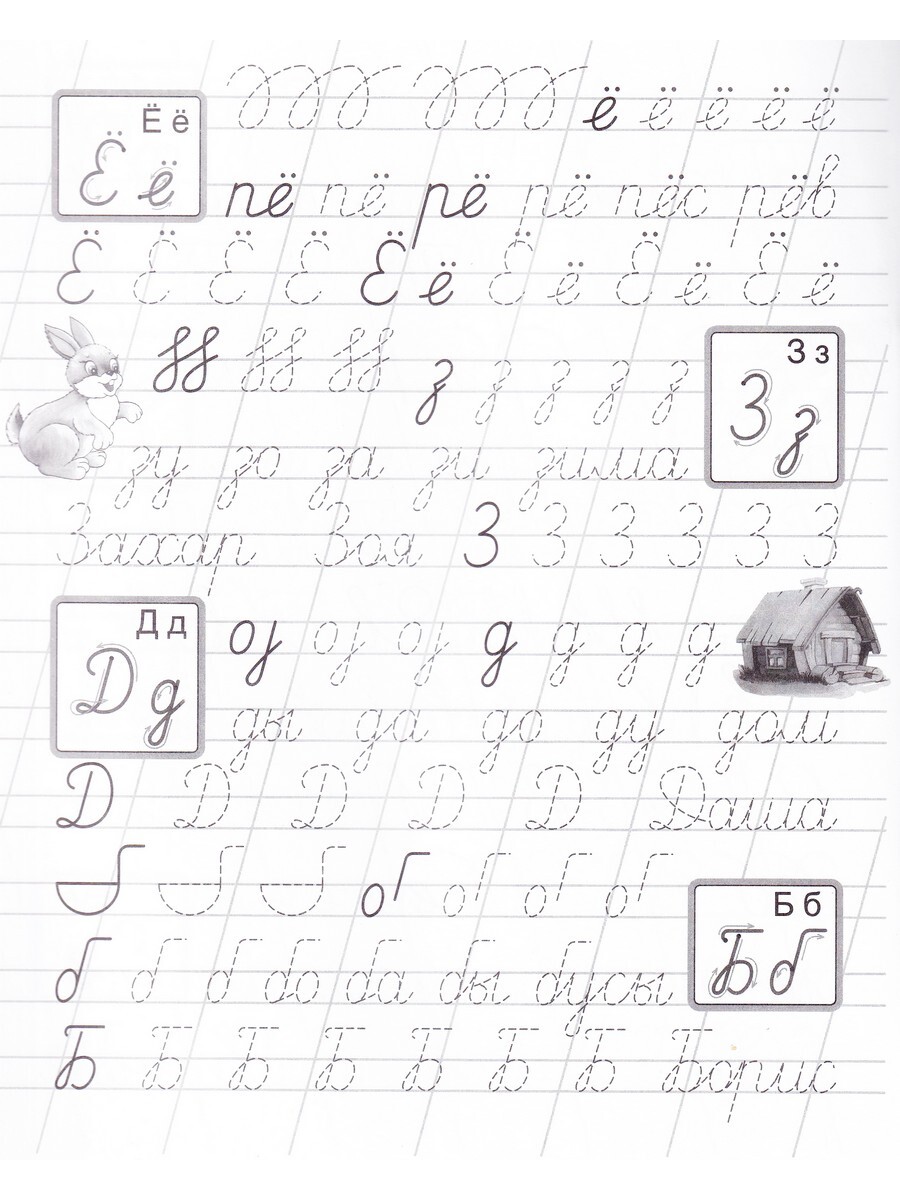 Ё ё
Ё ё
ё ё ё ё ё
пё пё рё рё пёс рёв
Ё Ё Ё Ё Ё ё Ё ё Ё ё Ё ё
З з
З з
з з з з з
зу зо за зи зима
Захар Зоя З З З З З З
Д д
Д д
д д д д
ды да до ду дом
Д Д Д Д Д Даша
Б б
Б б
б б б бо ба бы бусы
Б Б Б Б Б Б Б Борис